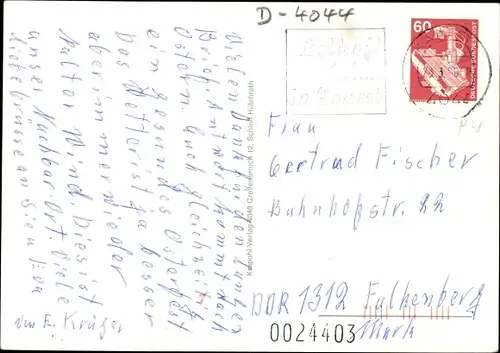 D-4044
60
DEUTSCHE BUNDESPOST
4044
Vielen Dank für den langen
Brief. Antwort kommt nach
Ostern. Euch gleichzeitig
ein gesundes Osterfest
Das Wetter ist ja besser
aber immer wieder
kalter Wind. Dies ist
unser Nachbar Ort. Viele
liebe Grüsse an Sie
von E. Krüger
Krapohl-Verlag 4048 Grevenbroich 12, Schloß Hülchrath
Frau
Gertrud Fischer
Bahnhofstr. 22
DDR 1312 Falkenberg
Mark
0024403